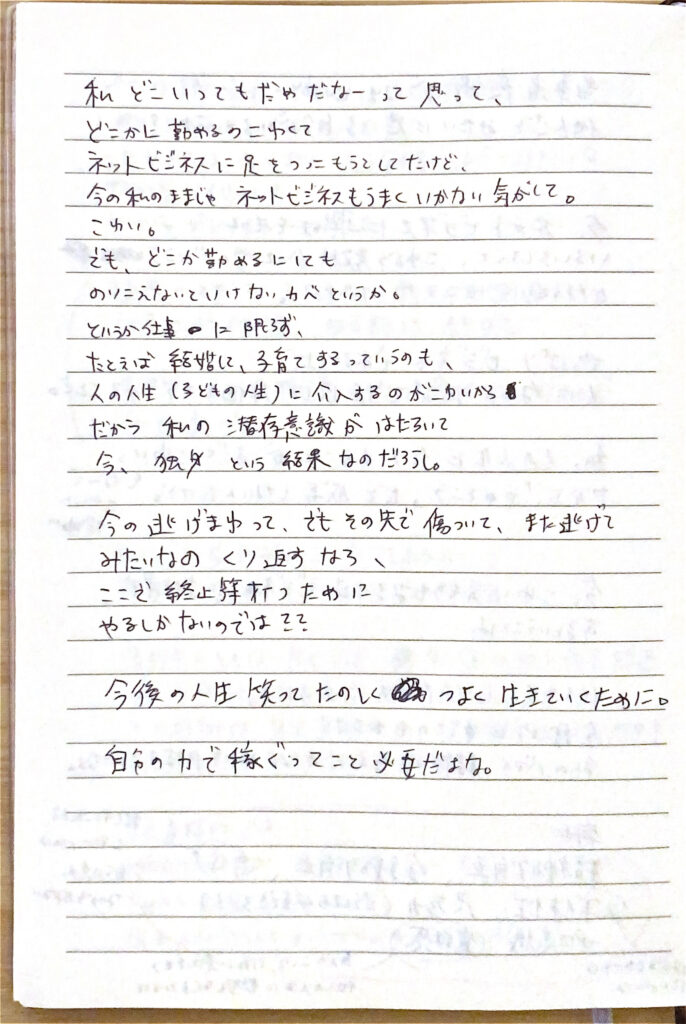 私 どこいってもだめだなーって 思って、
どこかに勤めるのこわくて
ネットビジネスに足をつっこもうとしてたけど、
今の私のままじゃ ネットビジネスもうまくいかない気がして。
こわい。
でも、どこか勤めるにしても
のりこえないといけないカベというか。
というか仕事 に限らず、
たとえば 結婚に、子育てするっていうのも、
人の人生(子どもの人生)に介入するのがこわいから
だから 私の 潜存意識が はたらいて
今、独身 という 結果なのだろうし。
今の逃げまわって、でもその先で傷ついて、また逃げて
みたいなの くり返すなら、
ここで 終止符打つために
やるしかないのでは??
今後の人生 笑って たのしく つよく 生きていくために。
自分の力で稼ぐってこと 必要だよな。